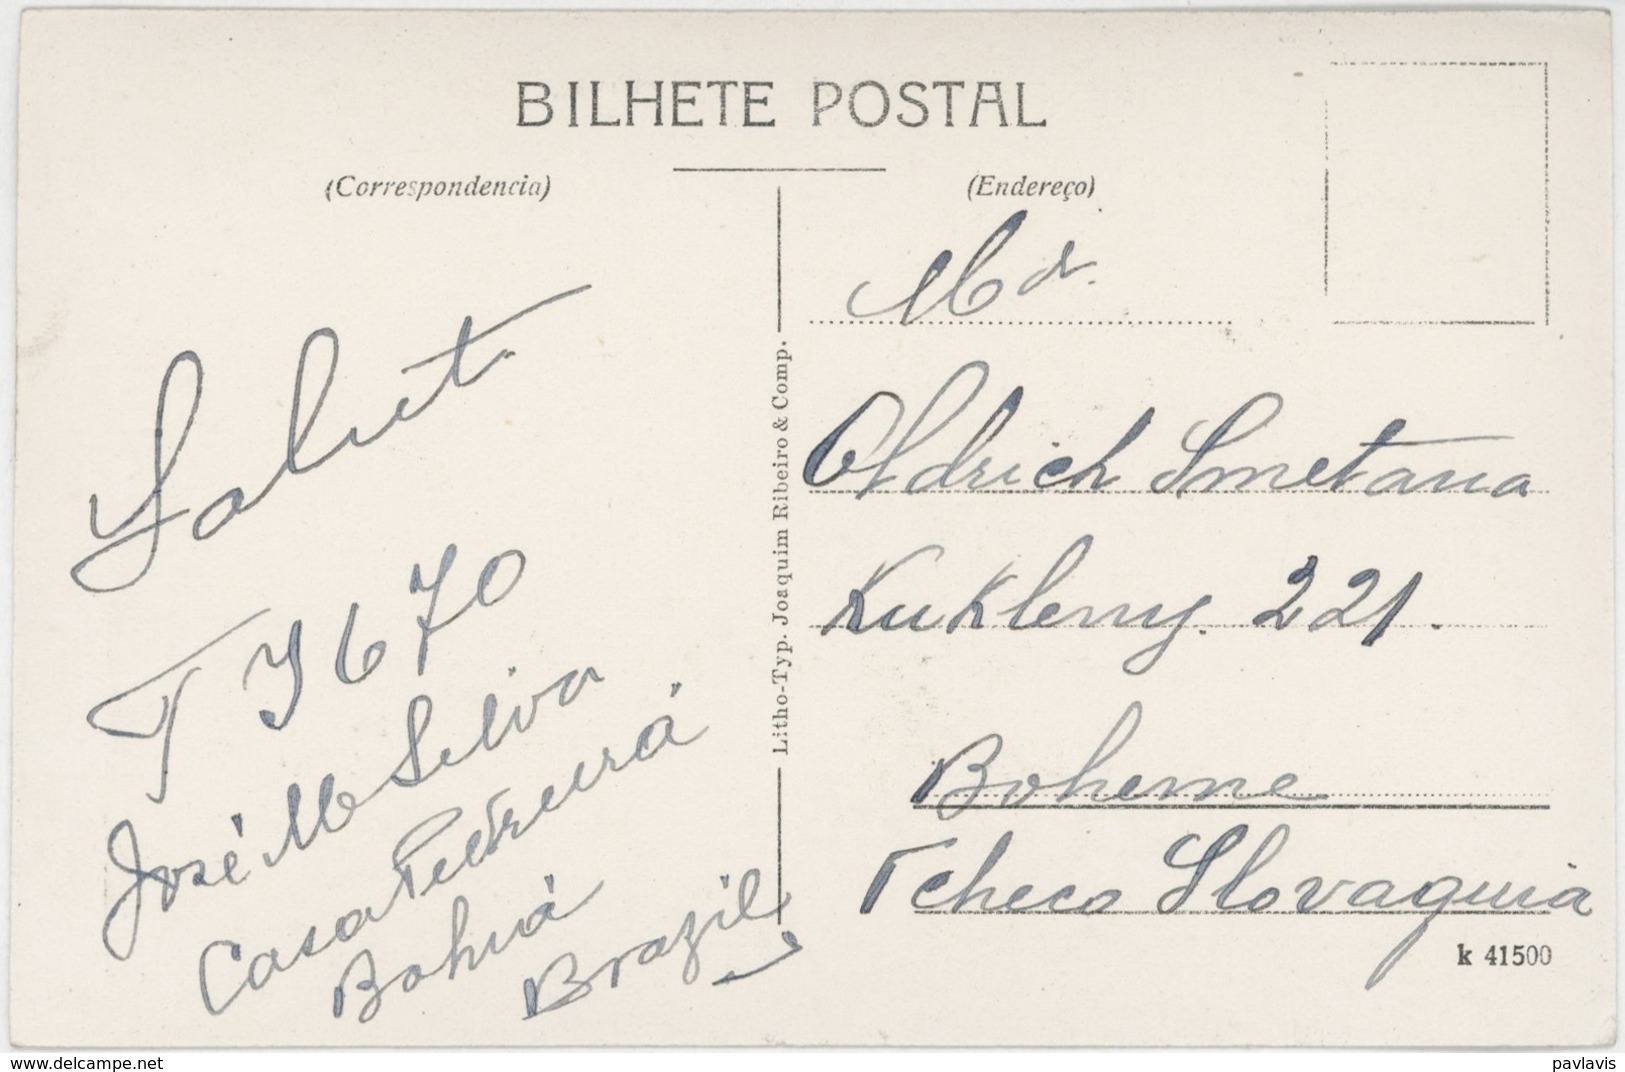 BILHETE POSTAL
(Correspondencia)
(Endereço)
Salut
T 3670
José M Silva
Casa Pereira
Bahia
Brazil
Litho-Typ. Joaquim Ribeiro & Comp.
Mr.
Oldrich Smetana
Kukleny. 221.
Boheme
Tcheco Slovaquia
k 41500
delcampe.net
pavlavis